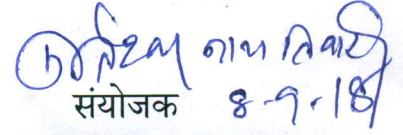 नाथ तिवारी
संयोजक 8-9-18